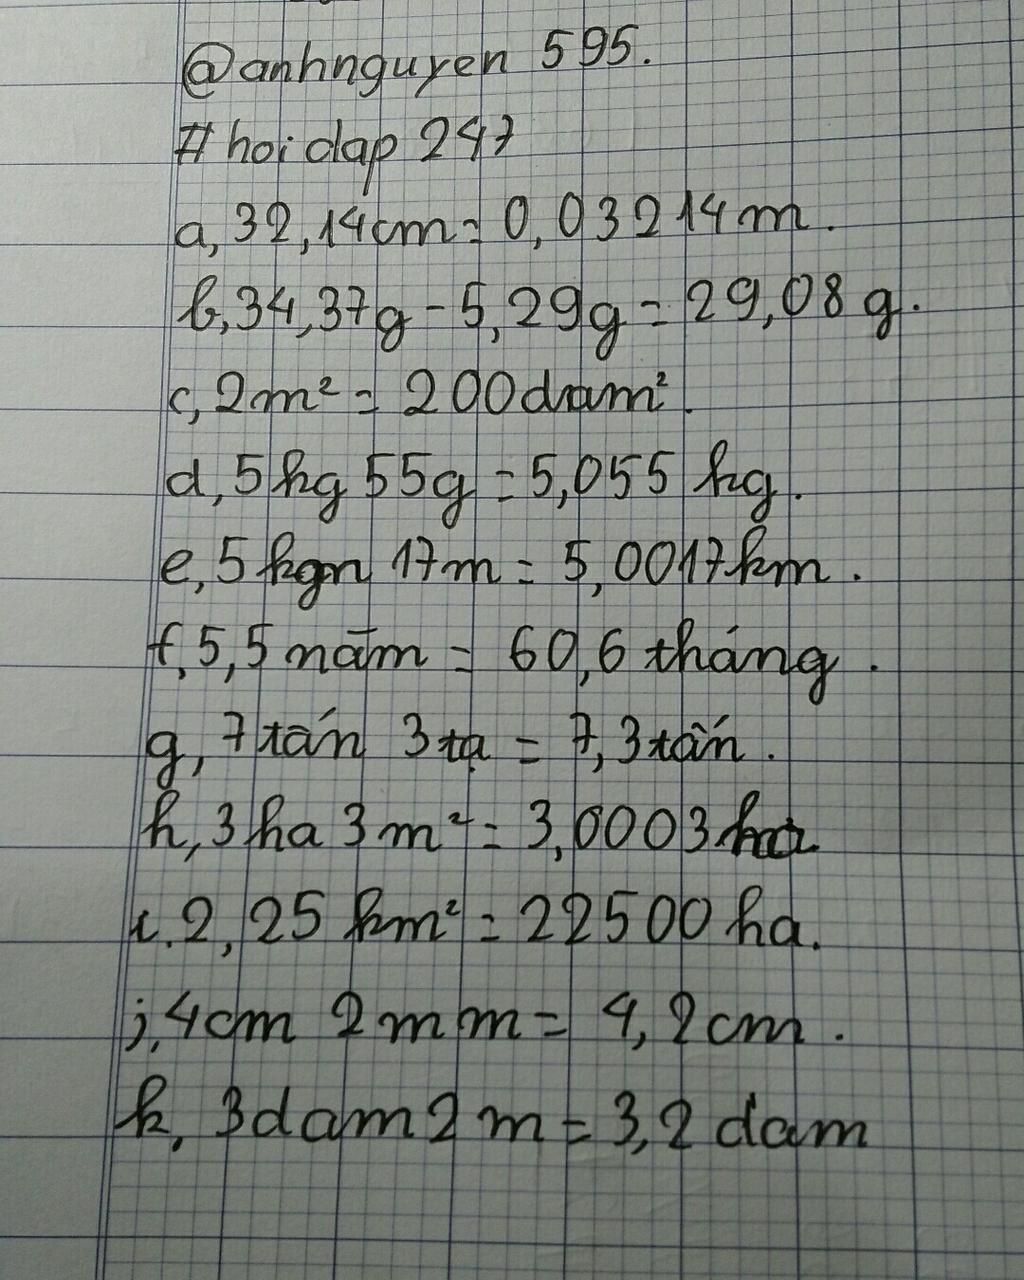 @anhnguyen 595.
# hoi dap 247
a, 32,14cm = 0,03214m.
b, 34,37g - 5,29g = 29,08g.
c, 2m² = 200dam².
d, 5kg 55g = 5,055 kg.
e, 5km 17m = 5,0017km.
f, 5,5 năm = 60,6 tháng.
g, 7 tấn 3 tạ = 7,3 tấn.
h, 3 ha 3 m² = 3,0003 ha
i. 2,25 km² = 22500 ha.
j, 4cm 2mm = 4,2cm.
k, 3dam 2m = 3,2 dam